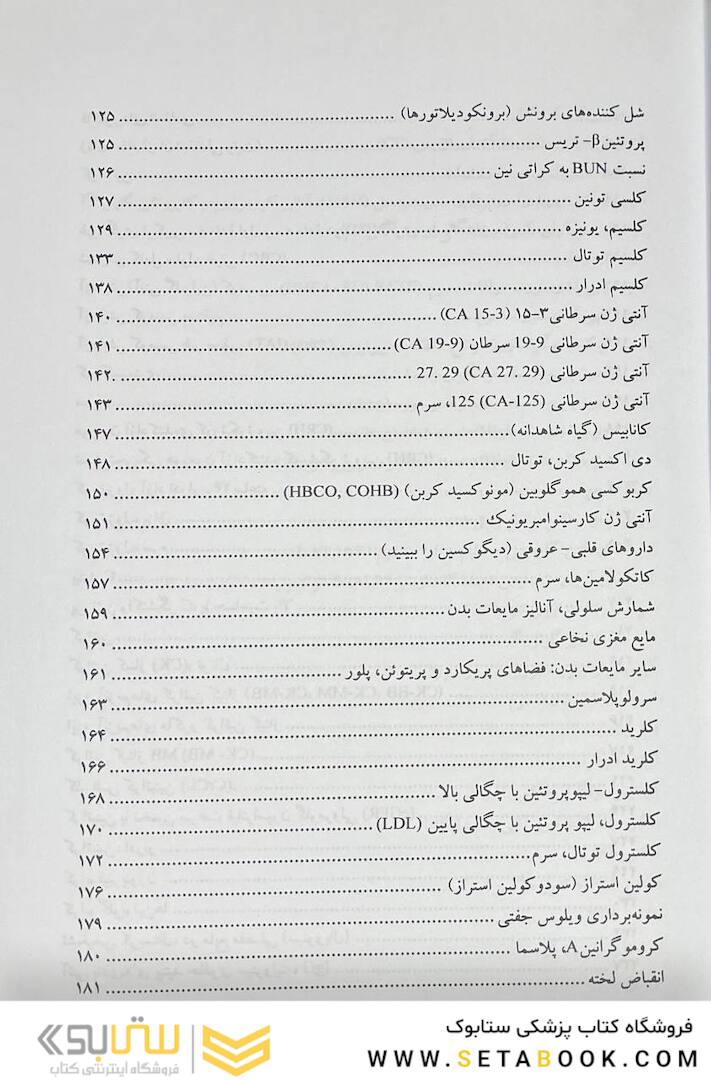 شل کننده‌های برونش (برونکودیلاتورها) ..... ۱۲۵
پروتئین β- تریس ..... ۱۲۵
نسبت BUN به کراتی نین ..... ۱۲۶
کلسی تونین ..... ۱۲۷
کلسیم، یونیزه ..... ۱۲۹
کلسیم توتال ..... ۱۳۳
کلسیم ادرار ..... ۱۳۸
آنتی ژن سرطانی ۳-۱۵ (CA 15-3) ..... ۱۴۰
آنتی ژن سرطانی 9-19 سرطان (CA 19-9) ..... ۱۴۱
آنتی ژن سرطانی 27. 29 (CA 27. 29) ..... ۱۴۲
آنتی ژن سرطانی 125 (CA-125)، سرم ..... ۱۴۳
کانابیس (گیاه شاهدانه) ..... ۱۴۷
دی اکسید کربن، توتال ..... ۱۴۸
کربوکسی هموگلوبین (مونوکسید کربن) (HBCO, COHB) ..... ۱۵۰
آنتی ژن کارسینوامبریونیک ..... ۱۵۱
داروهای قلبی- عروقی (دیگوکسین را ببینید) ..... ۱۵۴
کاتکولامین‌ها، سرم ..... ۱۵۷
شمارش سلولی، آنالیز مایعات بدن ..... ۱۵۹
مایع مغزی نخاعی ..... ۱۶۰
سایر مایعات بدن: فضاهای پریکارد و پریتوئن، پلور ..... ۱۶۱
سرولوپلاسمین ..... ۱۶۳
کلرید ..... ۱۶۴
کلرید ادرار ..... ۱۶۶
کلسترول- لیپوپروتئین با چگالی بالا ..... ۱۶۸
کلسترول، لیپو پروتئین با چگالی پایین (LDL) ..... ۱۷۰
کلسترول توتال، سرم ..... ۱۷۲
کولین استراز (سودوکولین استراز) ..... ۱۷۶
نمونه‌برداری ویلوس جفتی ..... ۱۷۹
کروموگرانین A، پلاسما ..... ۱۸۰
انقباض لخته ..... ۱۸۱
فروشگاه کتاب پزشکی ستابوک
WWW.SETABOOK.COM
ستابوک
فروشگاه اینترنتی کتاب